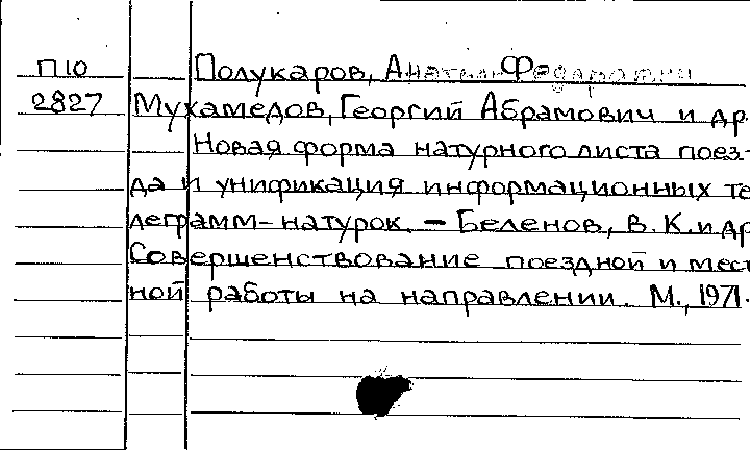 П10 Полукаров, Анатолий Федорович
2827 Мухамедов, Георгий Абрамович и др.
Новая форма натурного листа поез-
да и унификация информационных те
леграмм-натурок. – Беленов, В. К. и др
Совершенствование поездной и мест
ной работы на направлении. М., 1971.